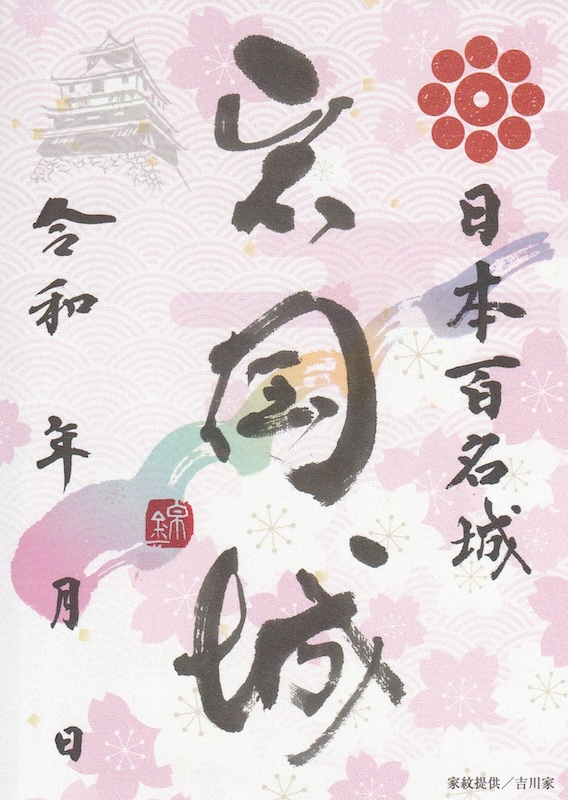 日本百名城
岩国城
錦
令和 年 月 日
家紋提供／吉川家